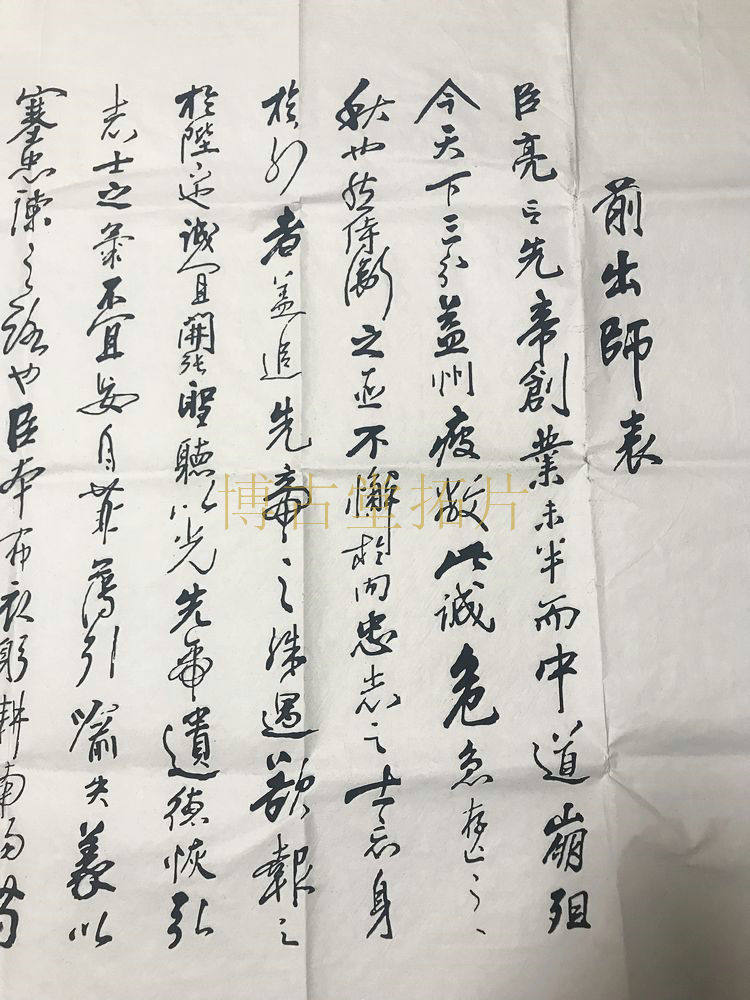 前出師表
臣亮言先帝創業未半而中道崩殂
今天下三分益州疲敝此誠危急存亡之
秋也然侍衛之臣不懈於內忠志之士忘身
於外者蓋追先帝之殊遇欲報之
於陛下也誠宜開張聖聽以光先帝遺德恢弘
志士之氣不宜妄自菲薄引喻失義以
塞忠諫之路也臣本布衣躬耕南陽苟
博古堂拓片